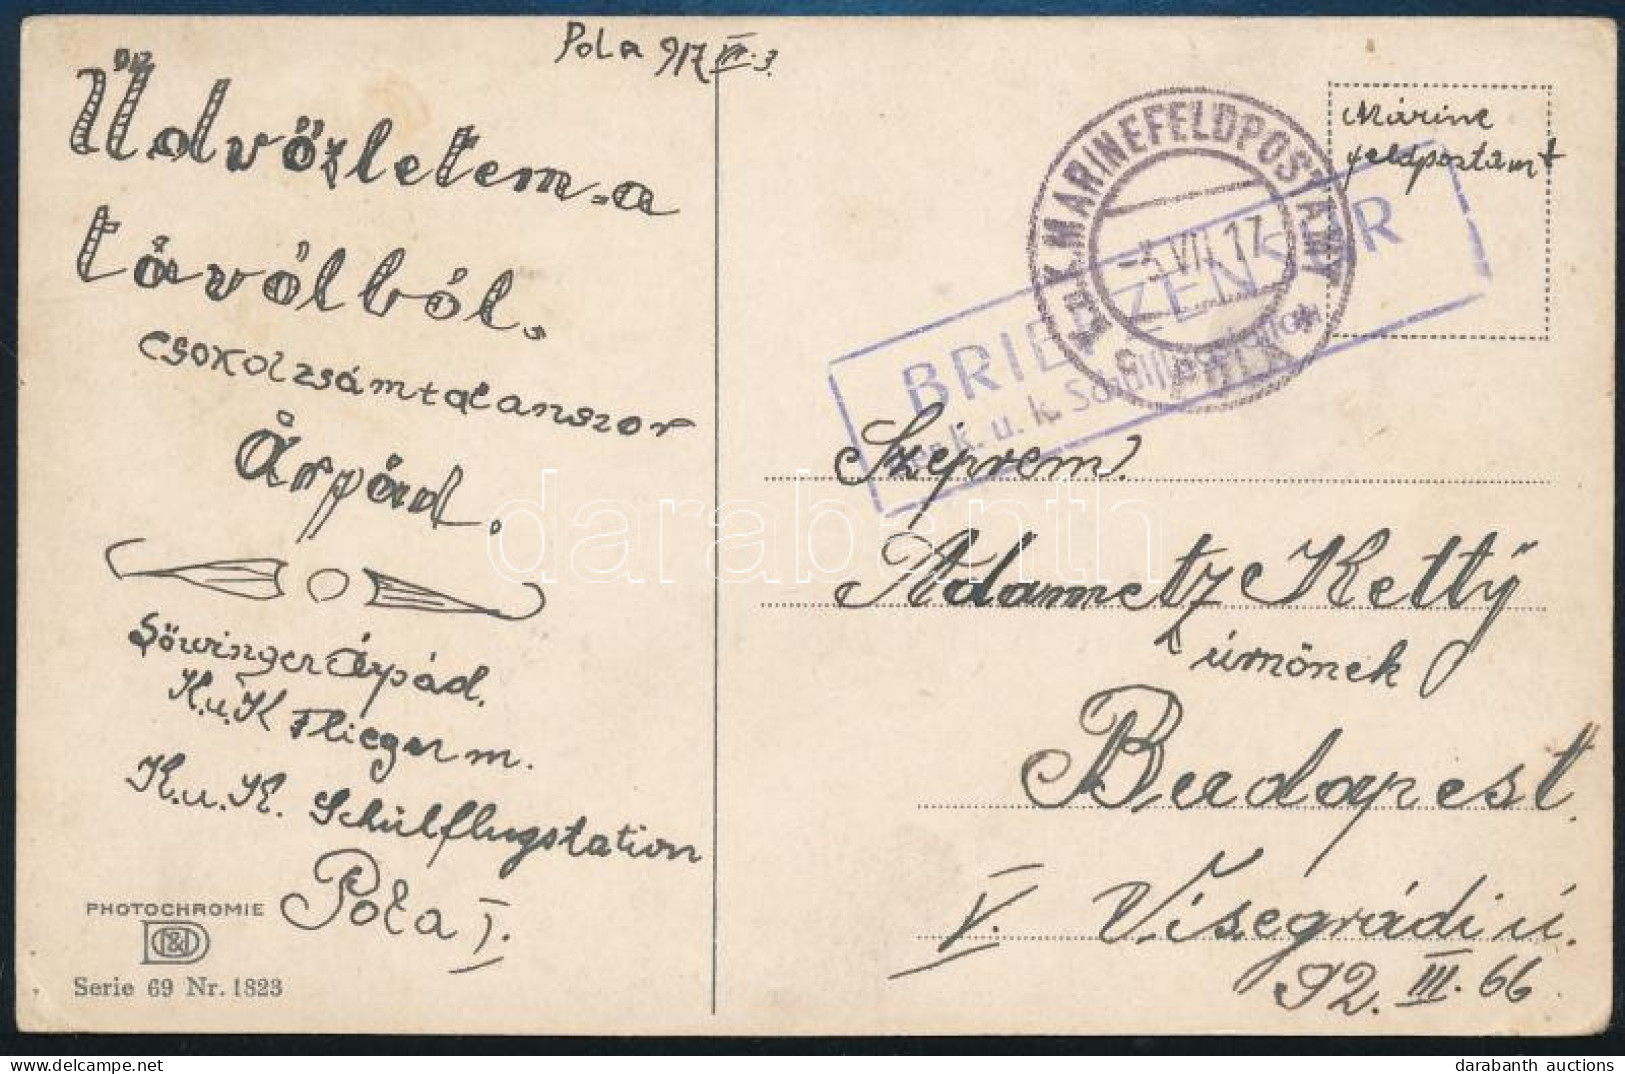 Pola 917 VII.3.
Üdvözletem a
távólból.
csokolzsámtalanszor
Árpád.
Söwinger Árpád.
K.u.K Flieger m.
K.u.K. Schülflugstation
Pola I.
PHOTOCHROMIE
Serie 69 Nr. 1823
Márine
feldpostamt
K.u.K. MARINEFELDPOSTAMT
-3. VII. 17
POLA
BRIEFZENSUR
der k. u. k.
Szeprem.
Adametz Kettÿ
úrnönek
Budapest.
V. Visegrádi ú.
92. III. 66
darabanth
darabanth auctions